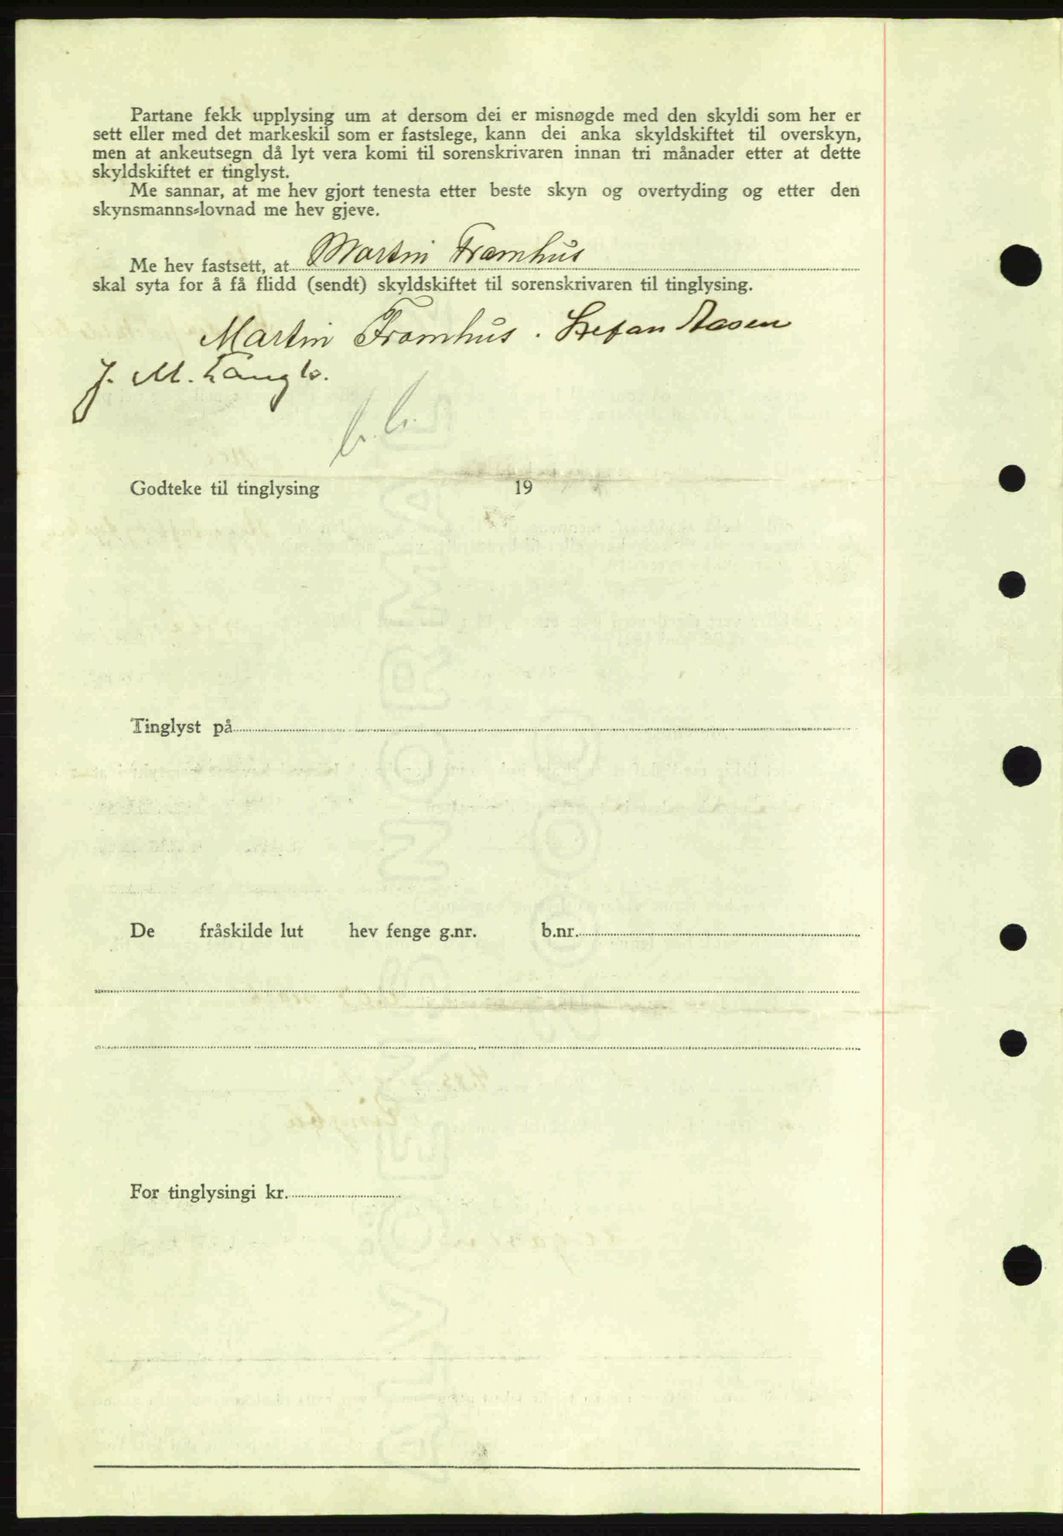 Partane fekk upplysing um at dersom dei er misnøgde med den skyldi som her er
sett eller med det markeskil som er fastslege, kann dei anka skyldskiftet til overskyn,
men at ankeutsegn då lyt vera komi til sorenskrivaren innan tri månader etter at dette
skyldskiftet er tinglyst.
Me sannar, at me hev gjort tenesta etter beste skyn og overtyding og etter den
skynsmanns-lovnad me hev gjeve.
Me hev fastsett, at Martin Framhus
skal syta for å få flidd (sendt) skyldskiftet til sorenskrivaren til tinglysing.
Martin Framhus. Stefan Aasen
J. M. Langlo.
Godteke til tinglysing 19
Tinglyst på
De fråskilde lut hev fenge g.nr. b.nr.
For tinglysingi kr.